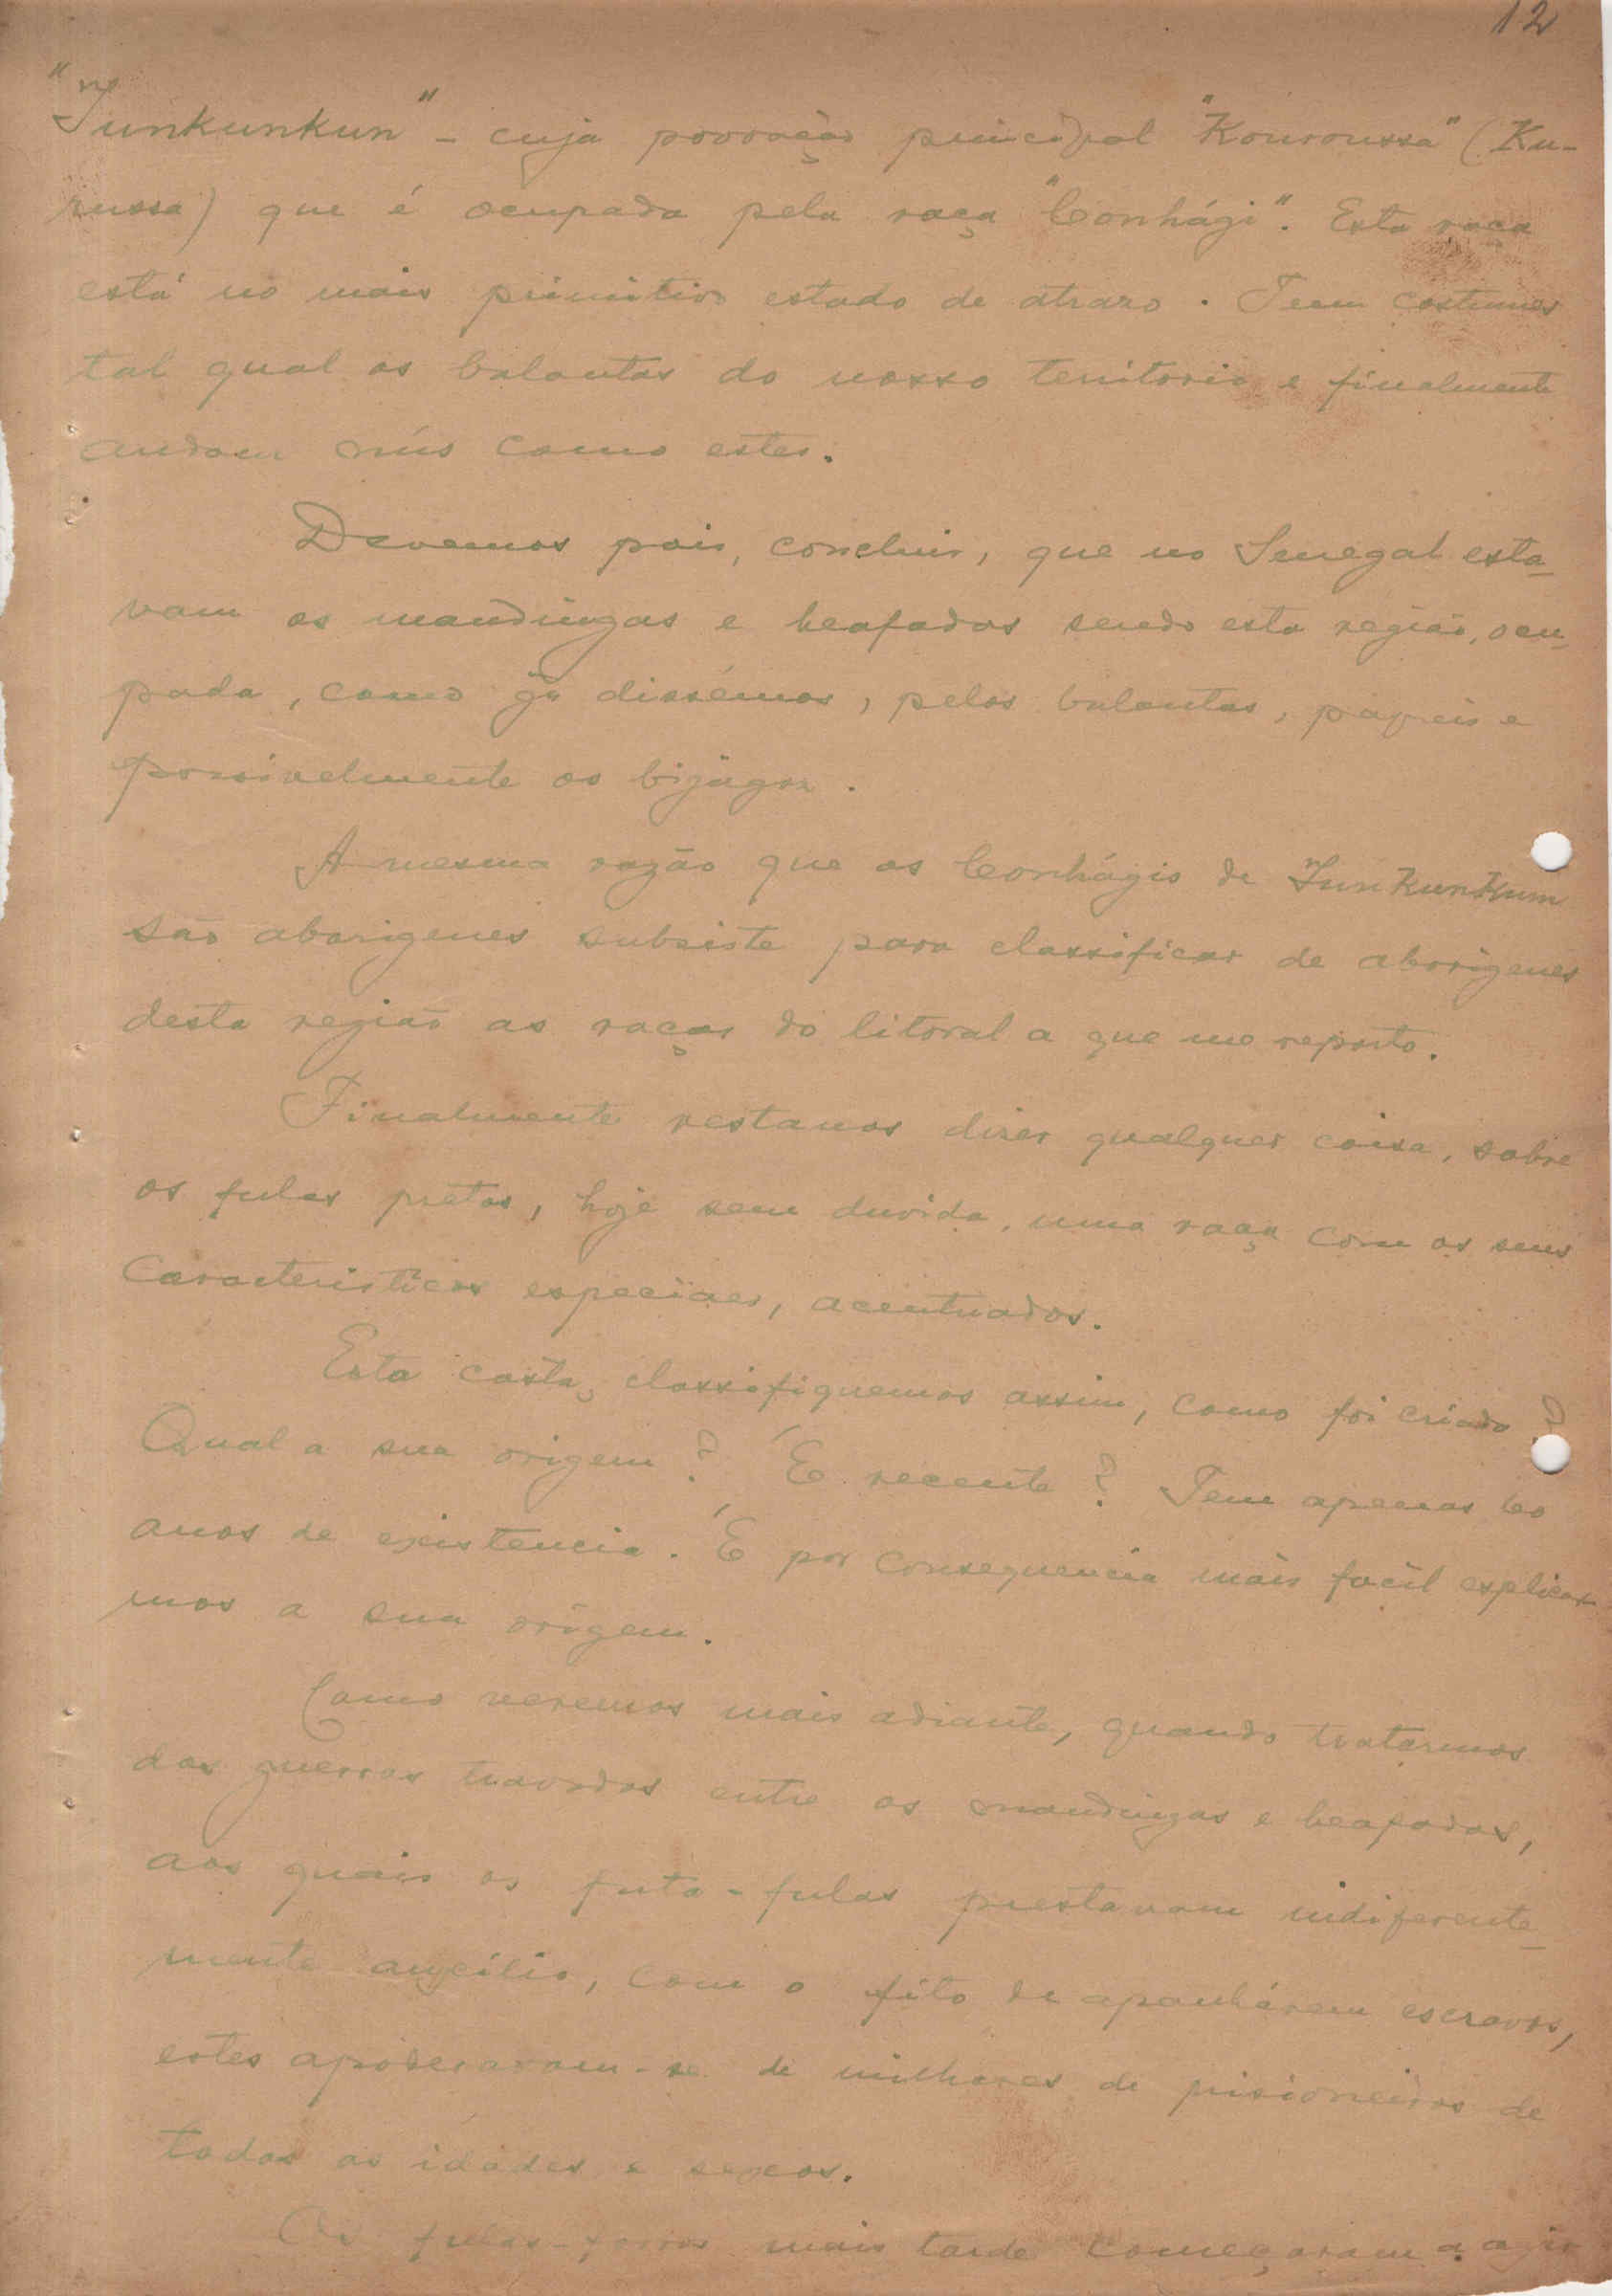 12
"Junkunkun" - cuja povoação principal "Kouroussa" (Ku-
russa) que é ocupada pela raça "Conhági". Esta raça
está no mais primitivo estado de atrazo. Teem costumes
tal qual os balantas do nosso territorio e finalmente
andam nús como estes.
Devemos pois, concluir, que no Senegal esta-
vam os mandingas e beafadas sendo esta região, ocu-
pada, como já dissémos, pelos balantas, papeis e
possivelmente os bijagoz.
A mesma razão que os Conhágis de Junkunkum
são aborigenes subsiste para classificar de aborigenes
desta região as raças do litoral a que me reporto.
Finalmente restanos dizer qualquer coisa, sobre
os fulas pretos, hoje sem duvida, uma raça com os seus
caracteristicos especiaes, acentuados.
Esta casta, classifiquemos assim, como foi criada?
Qual a sua origem? É recente? Tem apenas 60
anos de existencia. É por consequencia mais facil explicar-
mos a sua origem.
Como veremos mais adiante, quando tratarmos
das guerras travadas entre os mandingas e beafadas,
aos quais os futa-fulas prestavam indiferente-
mente auxilio, com o fito de apanhárem escravos,
estes apoderaram-se de milhares de prisioneiros de
todas as idades e sexos.
Os fulas-forros mais tarde começaram a agir